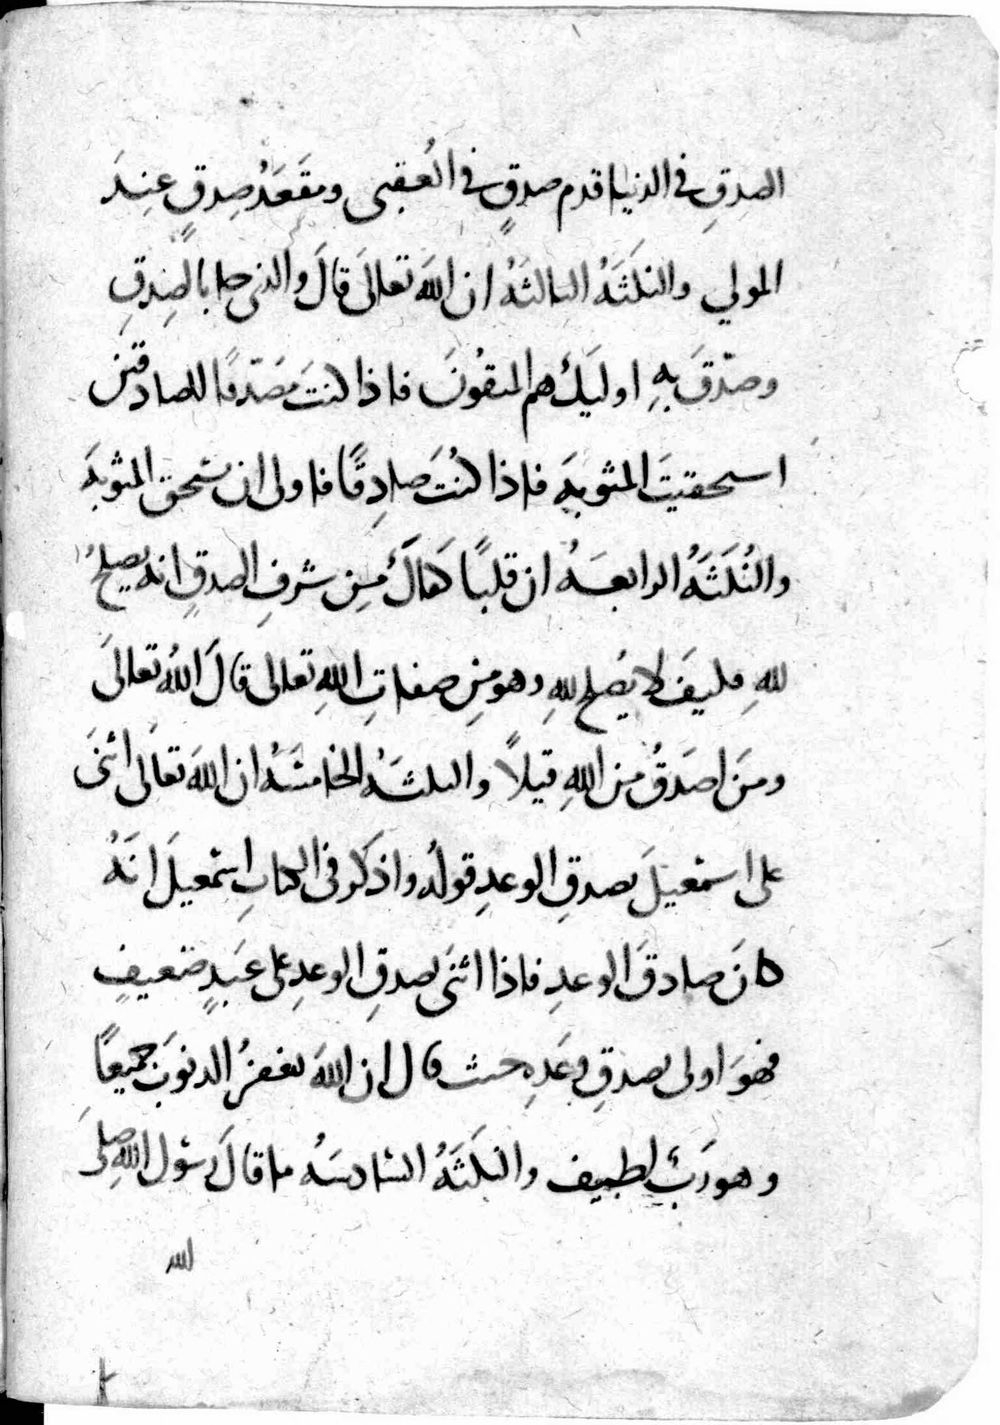 الصدقِ في الدنيا قدم صدقٍ في العُقبى ومقعَدُ صِدقٍ عِندَ
المولي والنكتَةُ الثالثَةُ ان اللهَ تعالَى قالَ والذى جا بالصِدقِ
وصدّقَ بِهِ اوليَك هم المتقُونَ فاذا كنتَ مصَدّقًا للصادقين
استحقيتَ المثوبة فاذا كنُتَ صادِقًا فاولى ان تستحق المثوبةَ
والنُكتَةُ الرابعَةُ ان قلبًا هَالَكَ مِن شرفِ الصدقِ انه يصلحُ
للهِ فكيفَ لا يَصْلح للهِ وهو مِن صفاتِ اللهِ تعالى قالَ اللهُ تعالَى
ومَن اصَدقُ من اللهِ قيلاً والنكتةُ الخامسَةُ ان اللهَ تعالَى اثنَى
على اسمعيلَ بصدقِ الوعدِ قولهُ واذكر فى الكتابِ اسمعيلَ انَهُ
كانَ صادقَ الوعدِ فاذا اثنَى بصدقِ الوعدِ على عَبدٍ ضعيفٍ
فهوَ اولى بصدقِ وعَدِه حيث قال ان اللهَ يغفرُ الذنوبَ جميعًا
وهو ربٌ لطيف والنكتَةُ السادسَةُ ما قالَ رسُول اللهِ صلىَ
لله